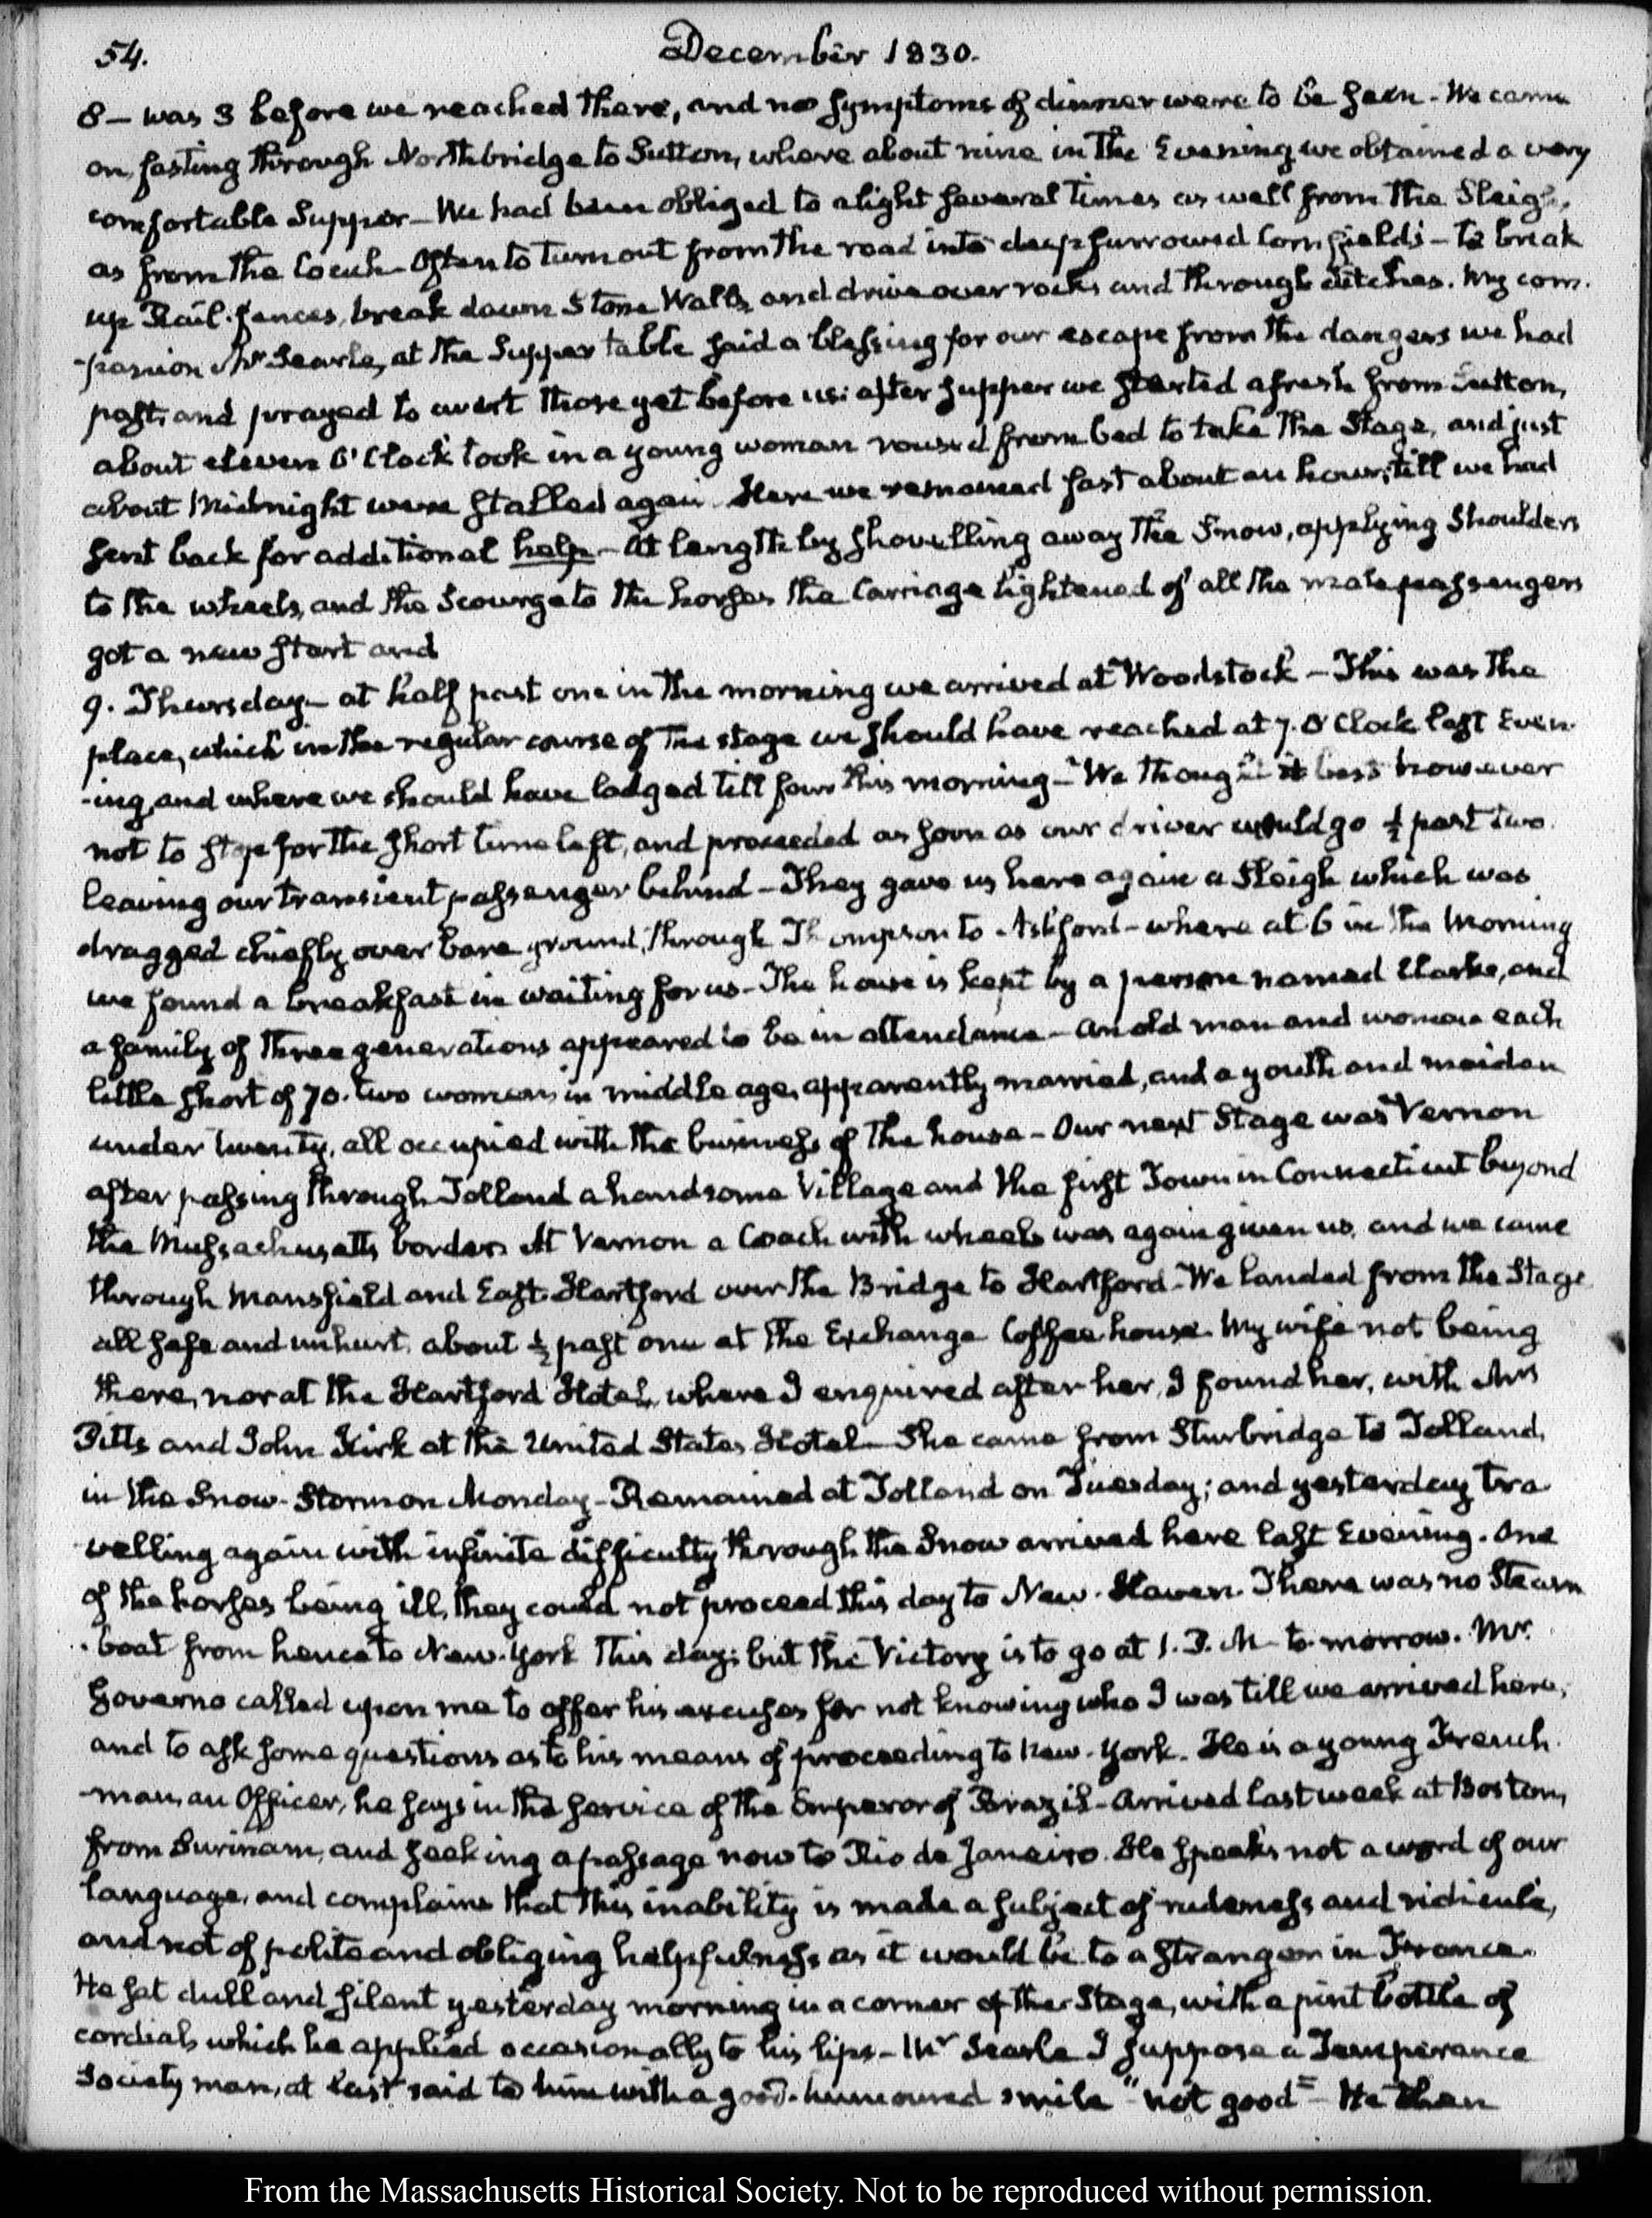 54.
December 1830.
8 — was 3 before we reached there, and no symptoms of dinner were to be seen — We came
on, fasting through Northbridge to Sutton, where about nine in the Evening we obtained a very
comfortable Supper — We had been obliged to alight several times as well from the Sleigh,
as from the Coach — Often to turn out from the road into deep furrowed Corn fields — to break
up Rail-fences, break down Stone Walls, and drive over rocks and through ditches. My com-
-panion Mr Searle, at the Supper table said a blessing for our escape from the dangers we had
past, and prayed to avert those yet before us: after supper we started afresh from Sutton,
about eleven O'Clock took in a young woman roused from bed to take the Stage, and just
about Midnight were stalled again. Here we remained fast about an hour, till we had
sent back for additional help — At length by shovelling away the Snow, applying Shoulders
to the wheels, and the Scourge to the horses the Carriage lightened of all the male passengers
got a new start and
9. Thursday — at half past one in the morning we arrived at Woodstock — This was the
place, which in the regular course of the stage we should have reached at 7. O'Clock last Even-
-ing, and where we should have lodged till four this morning — We thought it best however
not to stop for the short time left, and proceeded as soon as our driver would go ½ past two.
leaving our transient passenger behind — They gave us here again a Sleigh which was
dragged chiefly over bare ground, through Thompson to Ashford — where at 6 in the Morning
we found a breakfast in waiting for us — The house is kept by a person named Clarke, and
a family of three generations appeared to be in attendance — An old man and woman each
little short of 70. two women in middle age, apparently married, and a youth and maiden
under twenty, all occupied with the business of the house — Our next Stage was Vernon
after passing through Tolland a handsome Village and the first Town in Connecticut beyond
the Massachusetts borders At Vernon a Coach with wheels was again given us, and we came
through Mansfield and East-Hartford over the Bridge to Hartford — We landed from the Stage
all safe and unhurt, about ½ past one at the Exchange Coffee house. My wife not being
there, nor at the Hartford Hotel, where I enquired after her, I found her, with Mrs
Pitts and John Kirk at the United States Hotel — She came from Sturbridge to Tolland,
in the Snow-Storm on Monday — Remained at Tolland on Tuesday; and yesterday tra-
-velling again with infinite difficulty through the Snow arrived here last Evening. One
of the horses being ill, they could not proceed this day to New-Haven. There was no Steam
-boat from hence to New-York this day; but the Victory is to go at 1. P.M. to-morrow. Mr.
Governo called upon me to offer his excuses for not knowing who I was till we arrived here,
and to ask some questions as to his means of proceeding to New-York. He is a young French-
-man, an Officer, he says in the service of the Emperor of Brazil — Arrived last week at Boston,
from Surinam, and seeking a passage now to Rio de Janeiro. He speaks not a word of our
language, and complains that this inability is made a subject of rudeness and ridicule,
and not of polite and obliging helpfulness as it would be to a stranger in France.
He sat dull and silent yesterday morning in a corner of the Stage, with a pint bottle of
cordial, which he applied occasionally to his lips — Mr Searle I suppose a Temperance
Society man, at last said to him with a good-humoured smile "not good" — He then
From the Massachusetts Historical Society. Not to be reproduced without permission.